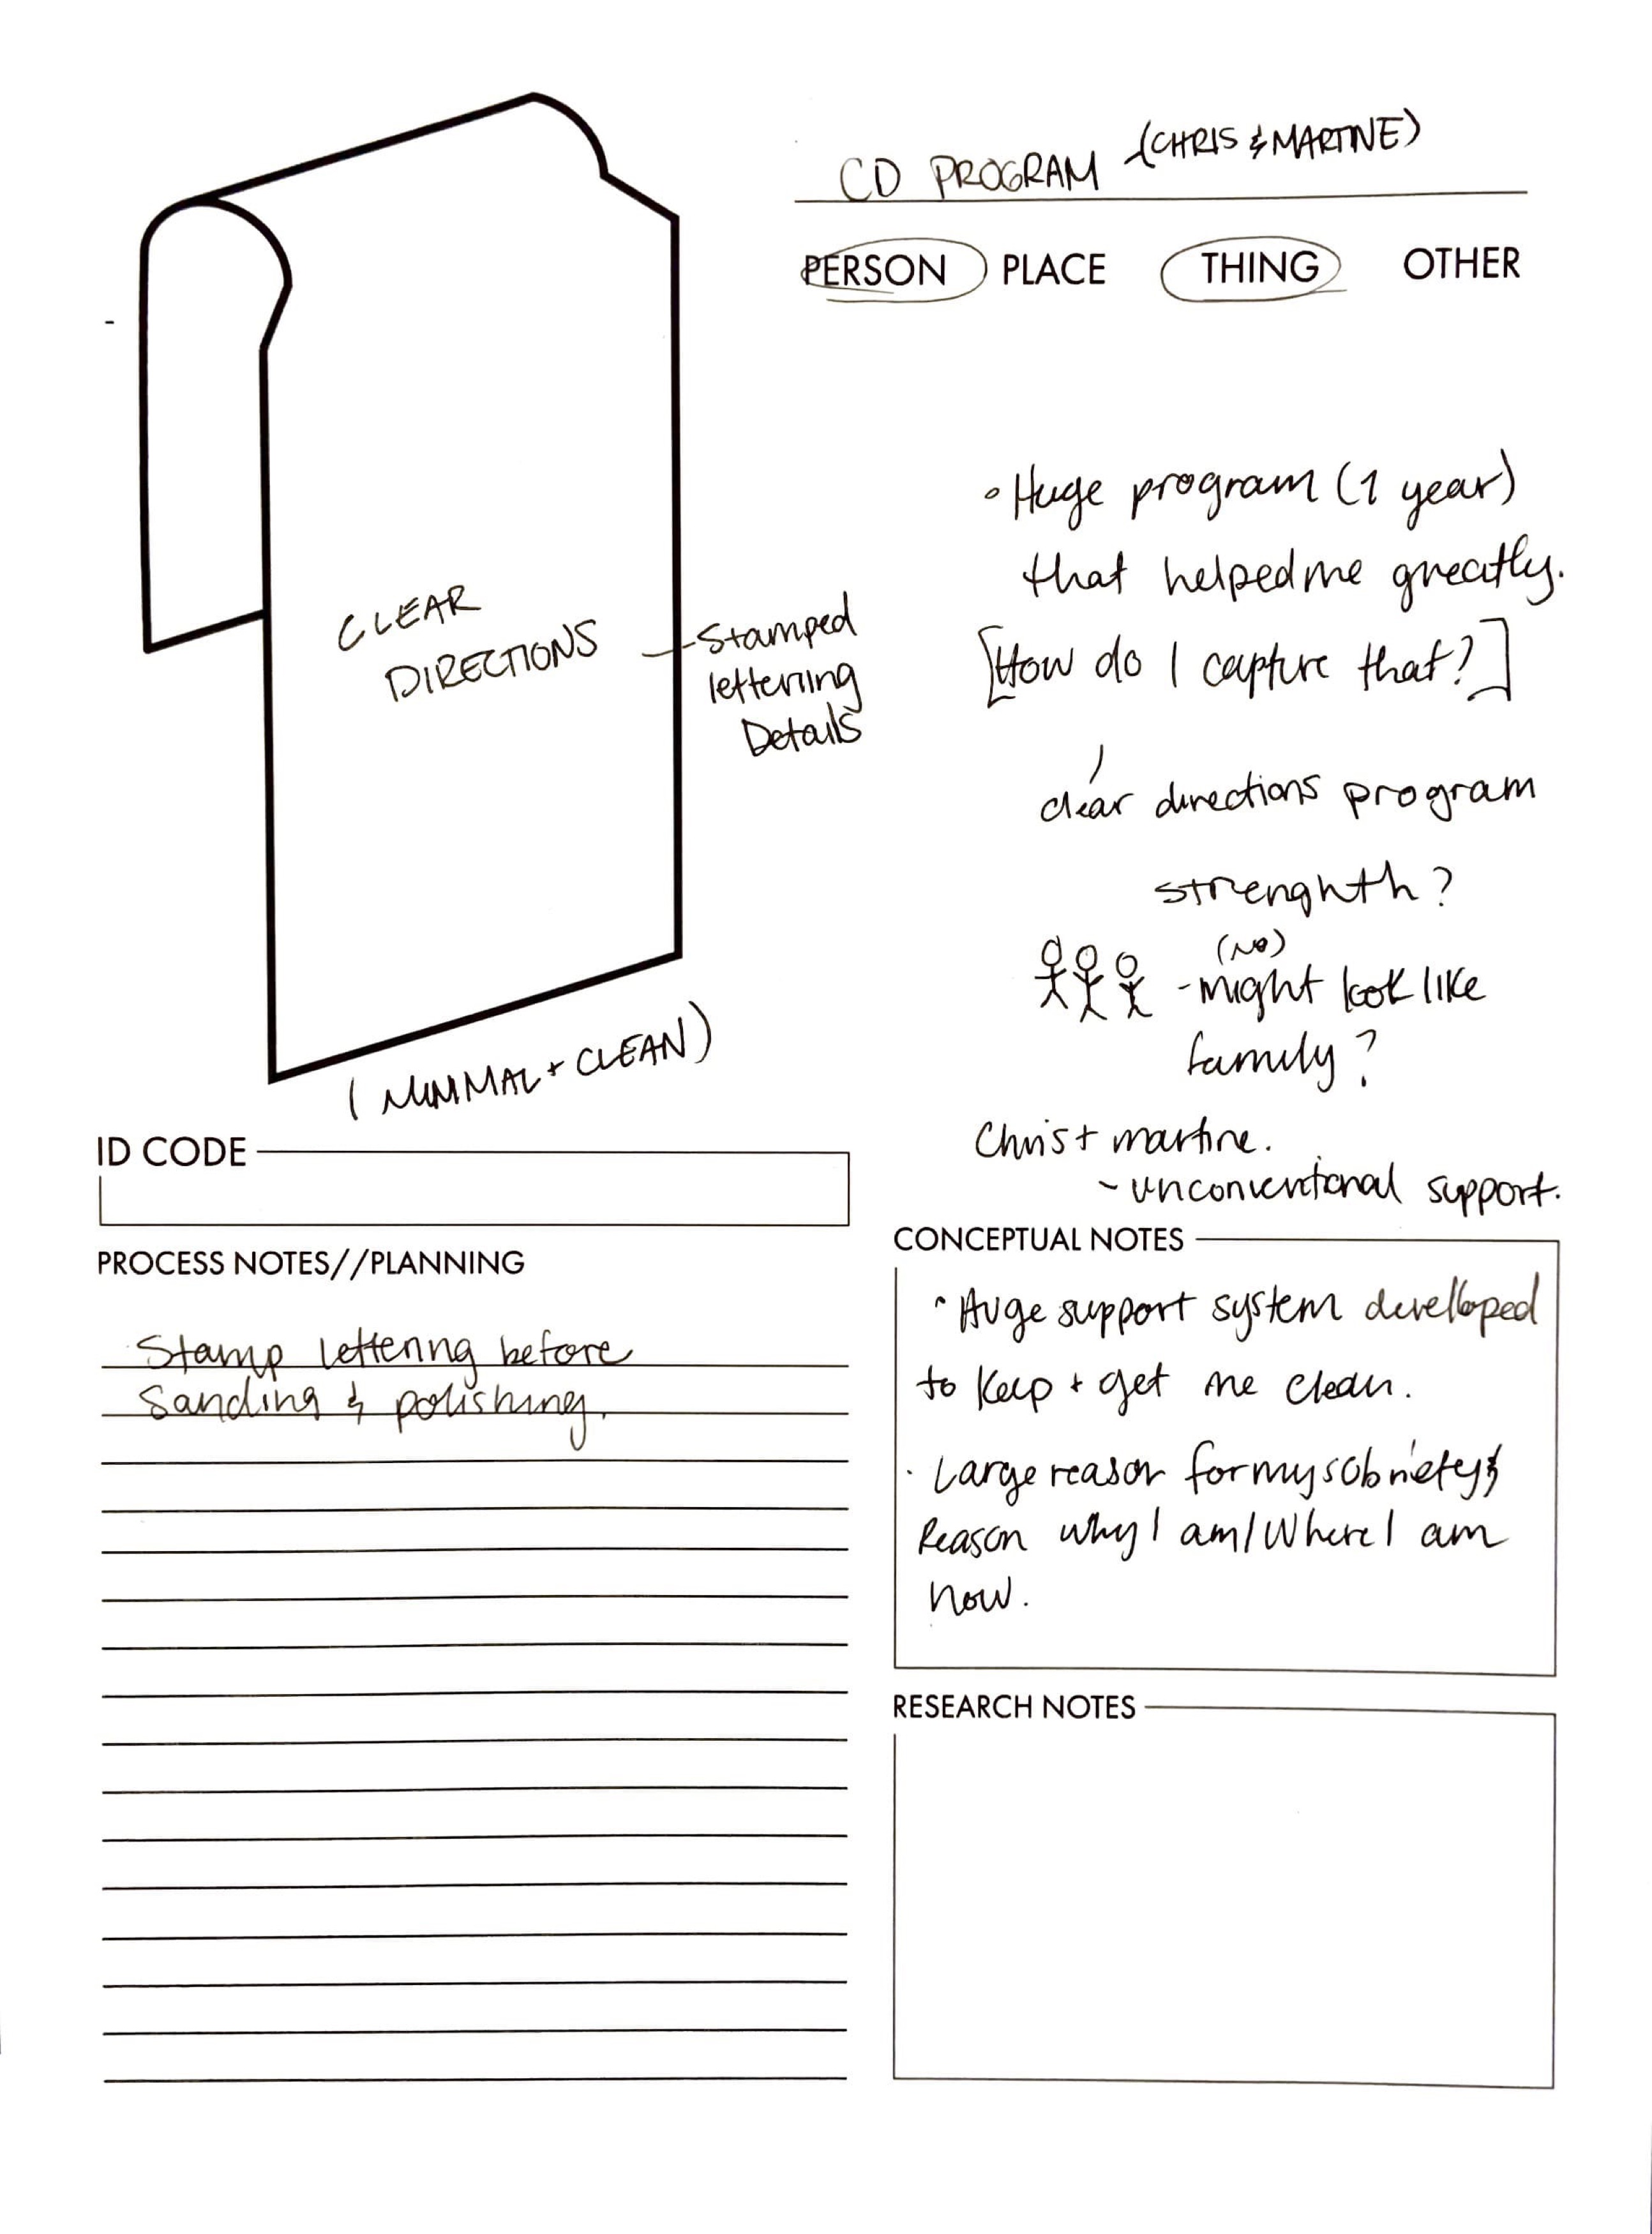 CD PROGRAM (CHRIS & MARTINE)
PERSON PLACE THING OTHER
CLEAR
DIRECTIONS
Stamped
lettering
Details
(MINIMAL + CLEAN)
• Huge program (1 year)
that helped me greatly.
[How do I capture that?]
clear directions program
strenghth?
(NO)
- might look like
family?
Chris + martine.
- unconventional support.
ID CODE
PROCESS NOTES//PLANNING
Stamp lettering before
Sanding & polishing.
CONCEPTUAL NOTES
• Huge support system develloped
to keep + get me clean.
• Large reason for my sobriety &
Reason why I am/Where I am
now.
RESEARCH NOTES